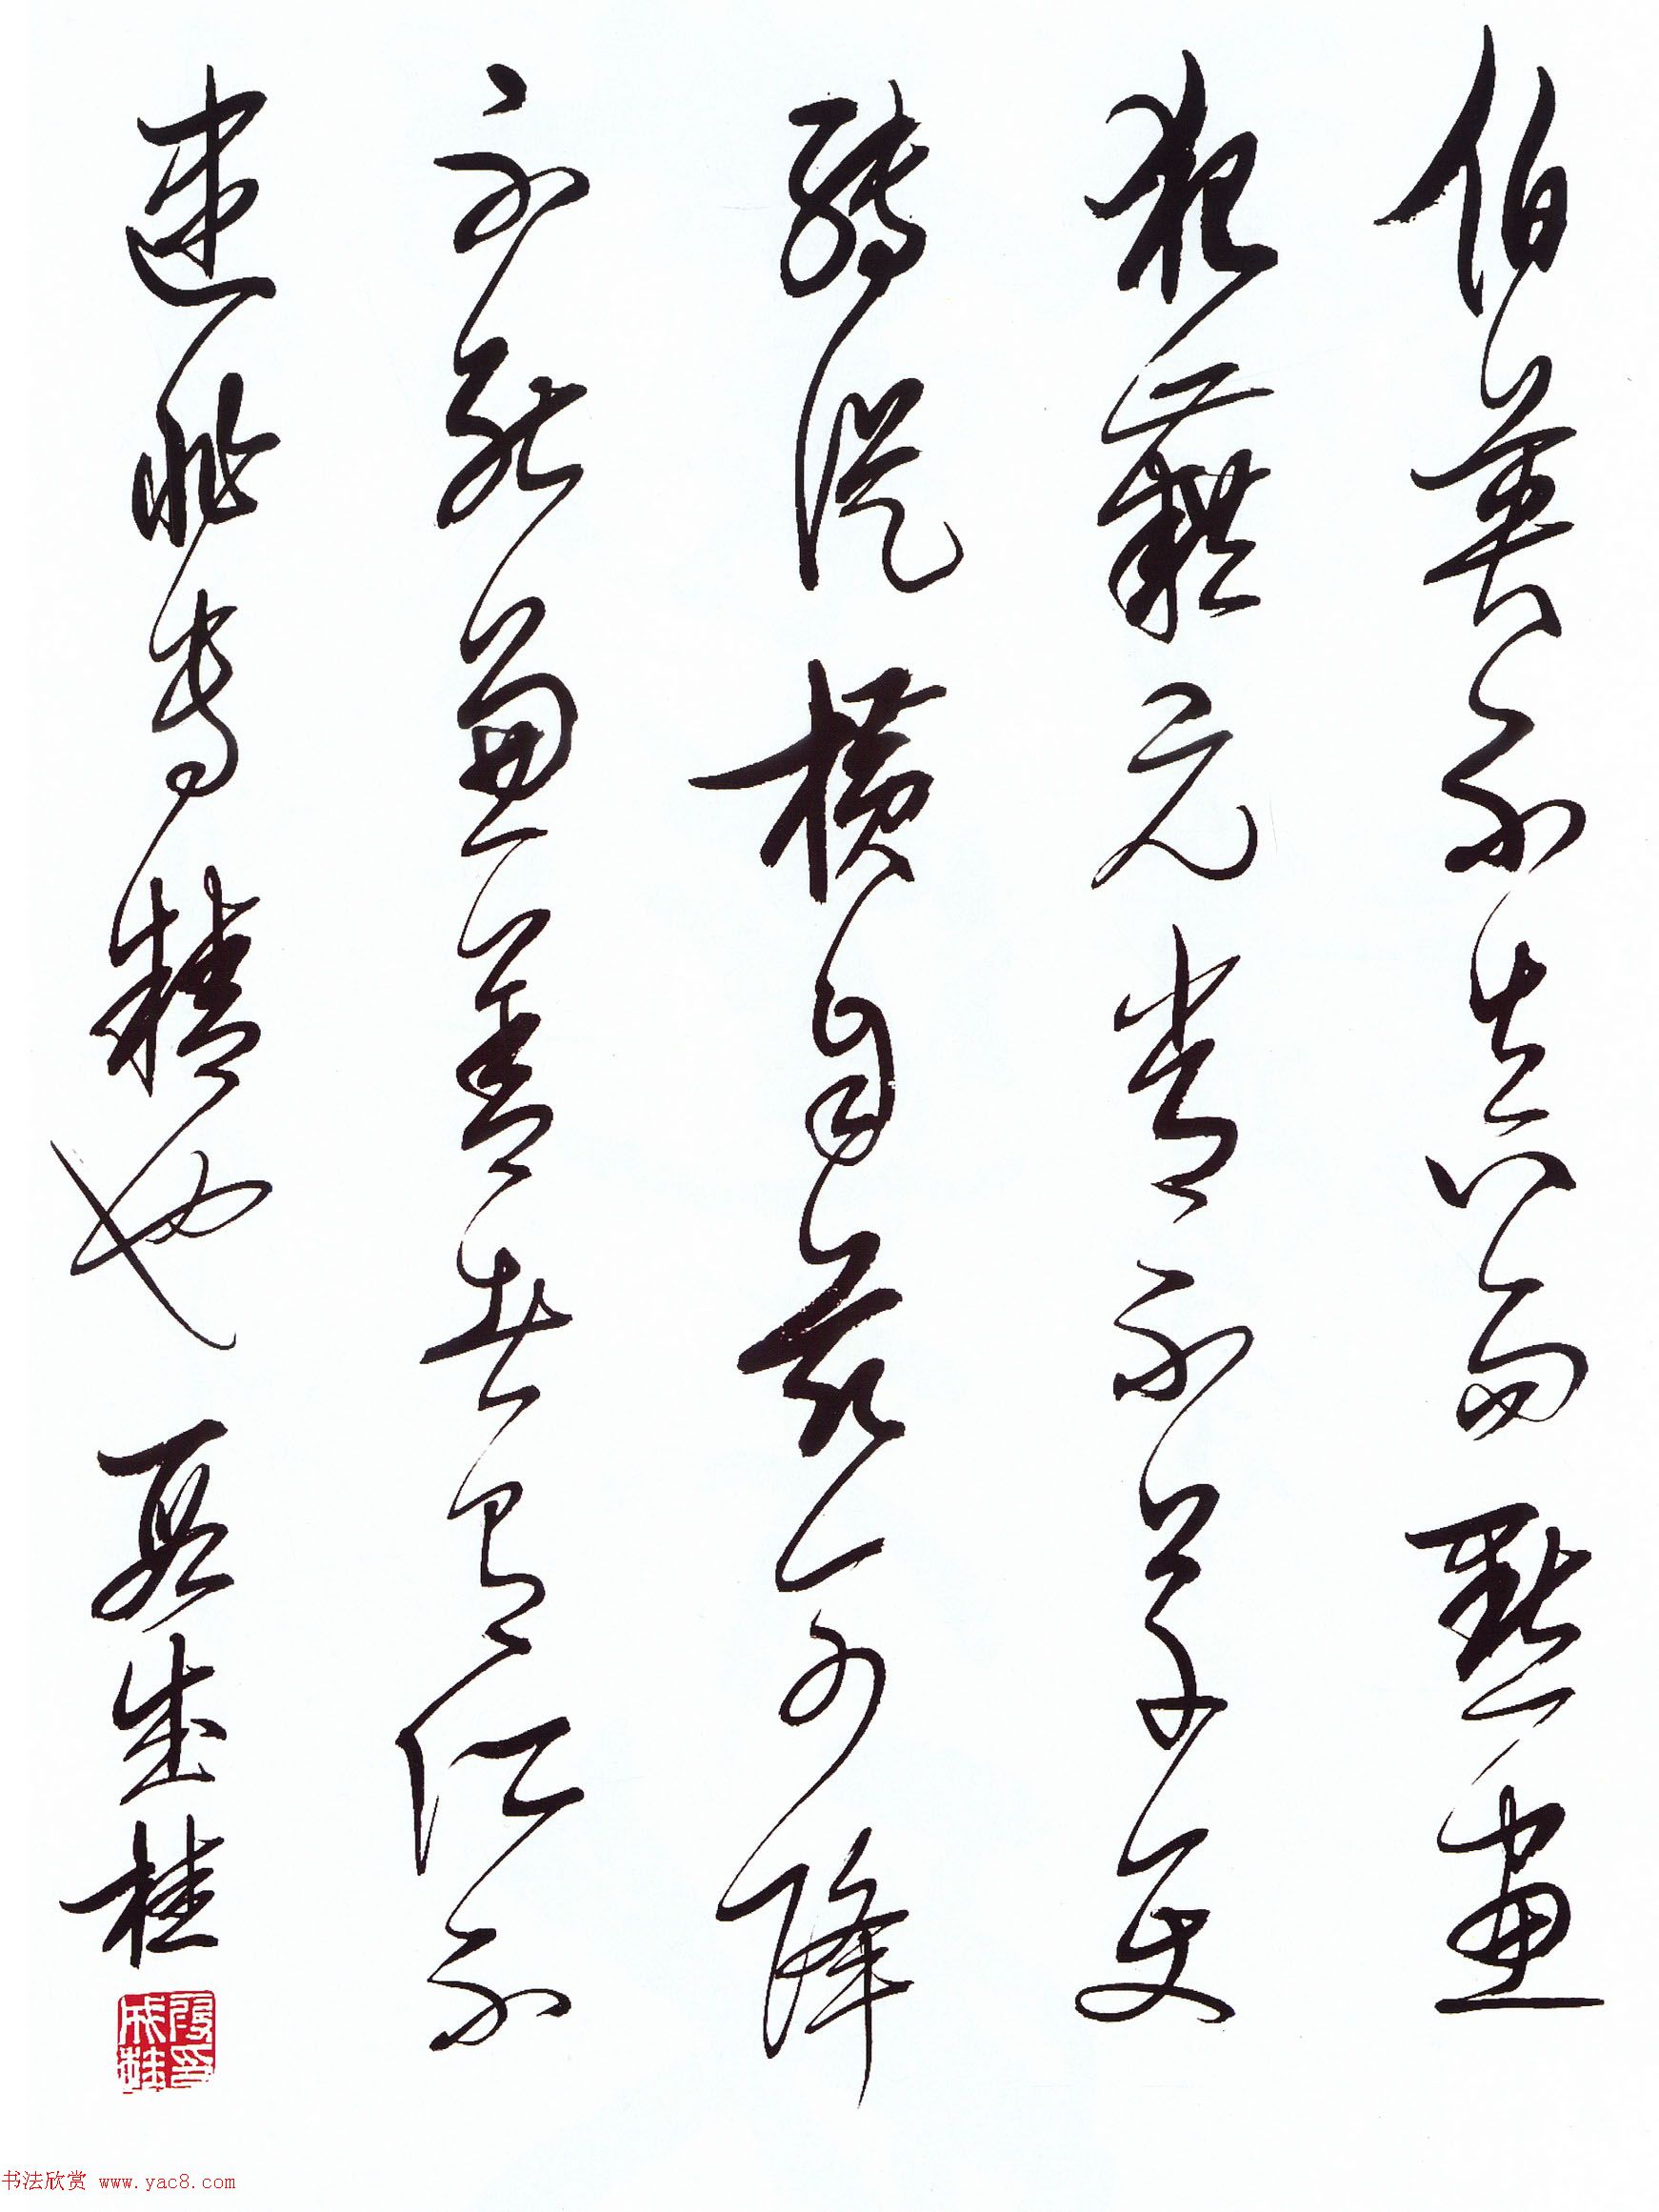 伯英不真而點畫
狼藉元常不草使
轉縱橫自茲已降
不能兼善者有所不
逮非專精也 段成桂
段成桂印
书法欣赏 www.yac8.com